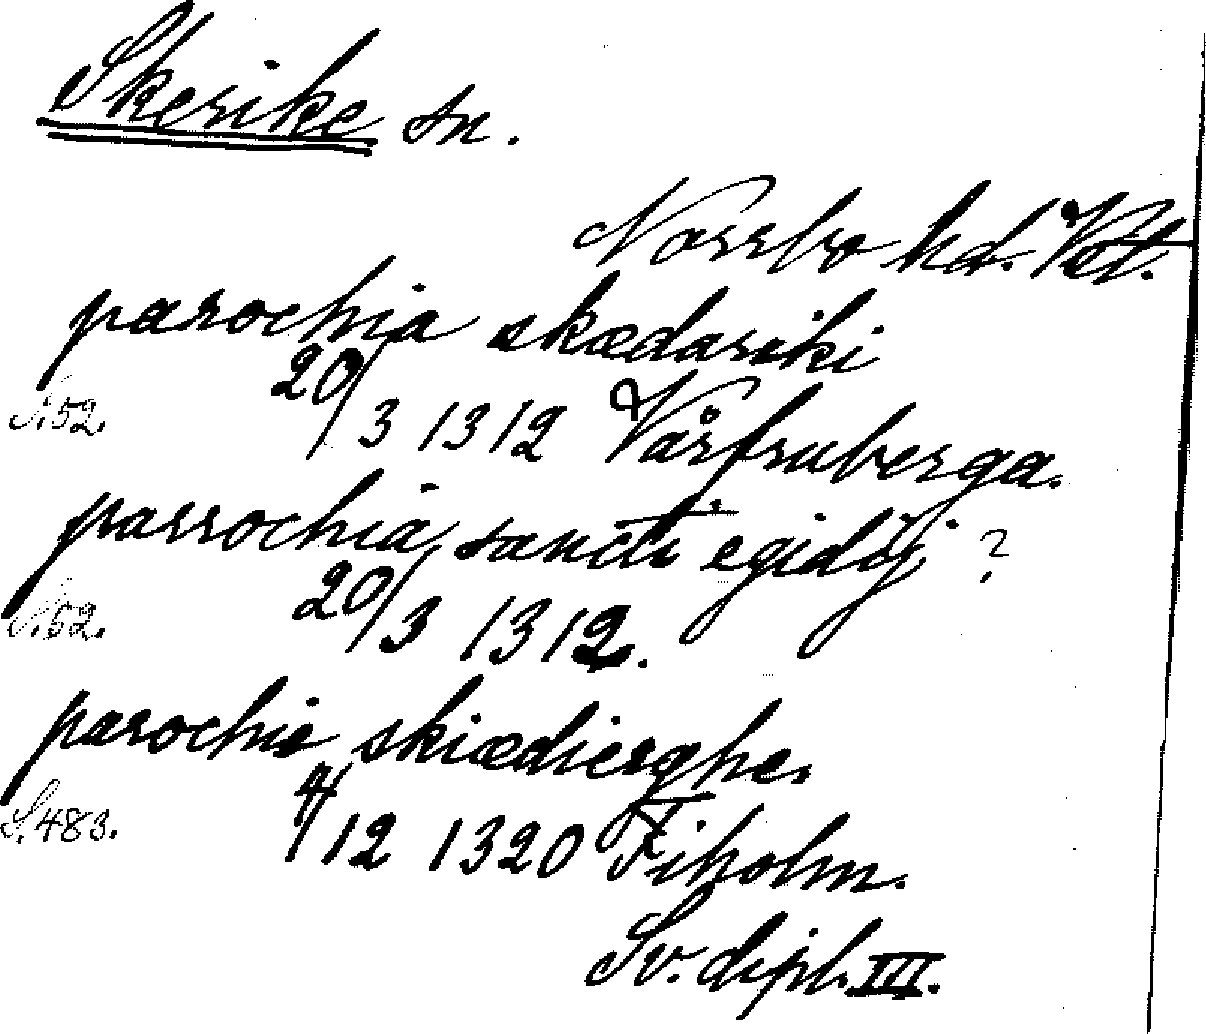 Skerike sn.
Norrbo hd. Vstl.
parochia skædariki
S. 52. 20/3 1312 Vårfruberga.
parrochia sancti egidij ?
S. 52. 20/3 1312.
parochie skiædierghe.
S. 483. 4/12 1320 Fiholm.
Sv. dipl. III.